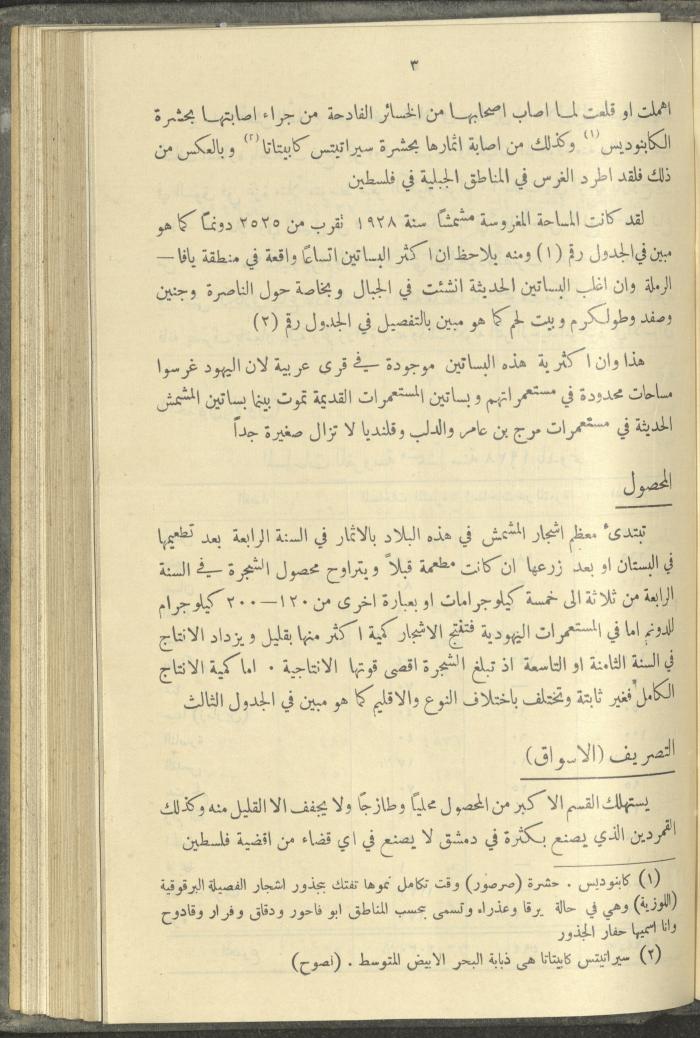 ٣
اهملت او قلعت لما اصاب اصحابها من الخسائر الفادحة من جراء اصابتها بحشرة
الكابنوديس (١) وكذلك من اصابة اثمارها بحشرة سيراتيتس كابيتاتا (٢) وبالعكس من
ذلك فلقد اطرد الغرس في المناطق الجبلية في فلسطين
لقد كانت المساحة المغروسة مشمشاً سنة ١٩٢٨ تقرب من ٢٥٢٥ دونماً كما هو
مبين في الجدول رقم (١) ومنه يلاحظ ان اكثر البساتين اتساعاً واقعة في منطقة يافا —
الرملة وان اغلب البساتين الحديثة انشئت في الجبال وبخاصة حول الناصرة وجنين
وصفد وطولكرم وبيت لحم كما هو مبين بالتفصيل في الجدول رقم (٢)
هذا وان اكثرية هذه البساتين موجودة في قرى عربية لان اليهود غرسوا
مساحات محدودة في مستعمراتهم وبساتين المستعمرات القديمة تموت بينما بساتين المشمش
الحديثة في مستعمرات مرج بن عامر والدلب وقلنديا لا تزال صغيرة جداً
المحصول
تبتدئ معظم اشجار المشمش في هذه البلاد بالاثمار في السنة الرابعة بعد تطعيمها
في البستان او بعد زرعها ان كانت مطعمة قبلاً ويتراوح محصول الشجرة في السنة
الرابعة من ثلاثة الى خمسة كيلوجرامات او بعبارة اخرى من ١٢٠—٢٠٠ كيلوجرام
للدونم اما في المستعمرات اليهودية فتفتج الاشجار كمية اكثر منها بقليل ويزداد الانتاج
في السنة الثامنة او التاسعة اذ تبلغ الشجرة اقصى قوتها الانتاجية . اما كمية الانتاج
الكامل فغير ثابتة وتختلف باختلاف النوع والاقليم كما هو مبين في الجدول الثالث
التصريف (الاسواق)
يستهلك القسم الاكبر من المحصول محلياً وطازجاً ولا يجفف الا القليل منه وكذلك
القمردين الذي يصنع بكثرة في دمشق لا يصنع في اي قضاء من اقضية فلسطين
(١) كابنوديس . حشرة (صرصور) وقت تكامل نموها تفتك بجذور اشجار الفصيلة البرقوقية
(اللوزية) وهي في حالة يرقا وعذراء وتسمى بحسب المناطق ابو فاحور ودقاق وفرار وقادوح
وانا اسميها حفار الجذور
(٢) سيراتيتس كابيتاتا هي ذبابة البحر الابيض المتوسط . (نصوح)